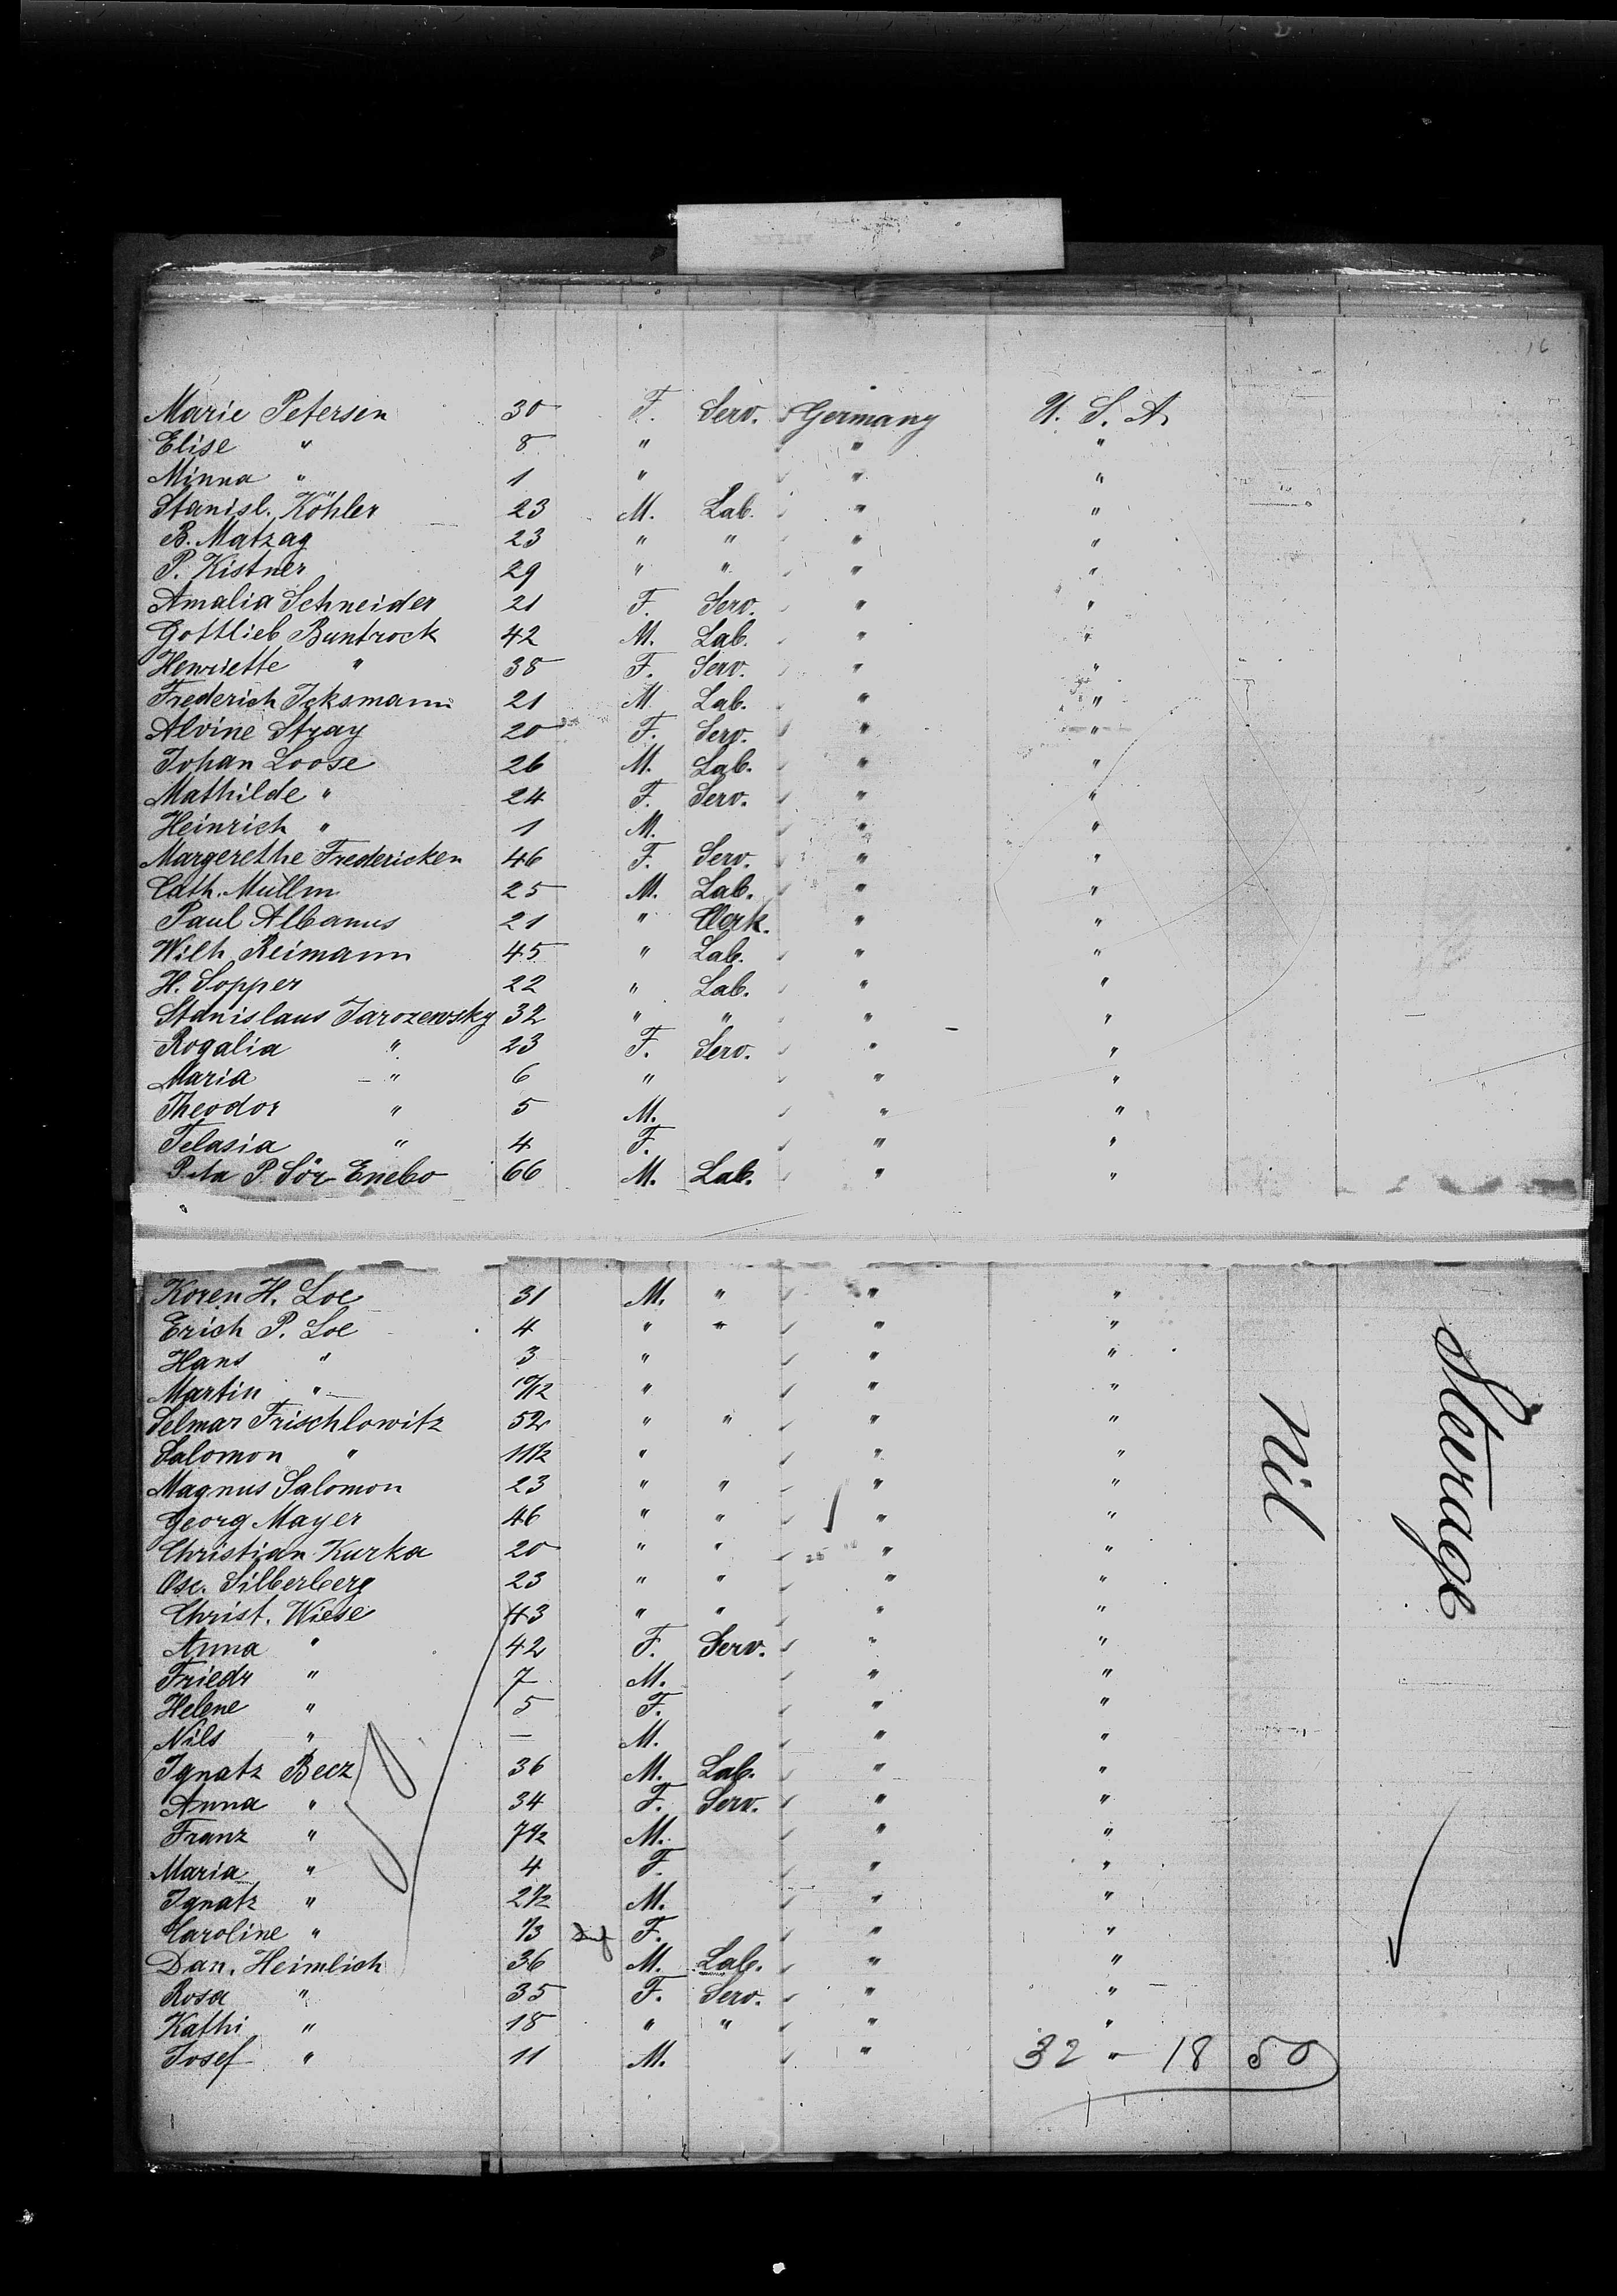 16
Marie Petersen 30 F. Serv. Germany U. S. A.
Elise " 8 " " "
Minna " 1 " " "
Stanisl. Köhler 23 M. Lab. " "
B. Matzag 23 " " " "
P. Kistner 29 " " " "
Amalia Schneider 21 F. Serv. " "
Gottlieb Buntrock 42 M. Lab. " "
Henriette " 38 F. Serv. " "
Frederich Icksmann 21 M. Lab. " "
Alvine Stray 20 F. Serv. " "
Johan Loose 26 M. Lab. " "
Mathilde " 24 F. Serv. " "
Heinrich " 1 M. " "
Margerethe Fredericken 46 F. Serv. " "
Cath. Müllm 25 M. Lab. " "
Paul Albanus 21 " Clerk. " "
Wilh. Reimann 45 " Lab. " "
H. Sopper 22 " Lab. " "
Stanislaus Jarozewsky 32 " " " "
Rogalia " 23 F. Serv. " "
Maria " 6 " " "
Theodor " 5 M. " "
Felasia " 4 F. " "
P. Sör Enebo 66 M. Lab. " "
Koren H. Loe 31 M. " " "
Erich P. Loe 4 " " " "
Hans " 3 " " "
Martin " 10/12 " " "
Selmar Frischlowitz 52 " " " "
Salomon " 11 1/2 " " "
Magnus Salomon 23 " " " "
Georg Mayer 46 " " " "
Christian Kurka 20 " " " "
Osc. Silberberg 23 " " " "
Christ. Wiese 43 " " " "
Anna " 42 F. Serv. " "
Friedr " 7 M. " "
Helene " 5 F. " "
Nils " — M. " "
Ignatz Becz 36 M. Lab. " "
Anna " 34 F. Serv. " "
Franz " 7 1/2 M. " "
Maria " 4 F. " "
Ignatz " 2 1/2 M. " "
Caroline " 1/3 F. " "
Dan. Heimlich 36 M. Lab. " "
Rosa " 35 F. Serv. " "
Kathi " 18 " " " "
Josef " 11 M. " "
32 - 18 50
Nil
Steerage